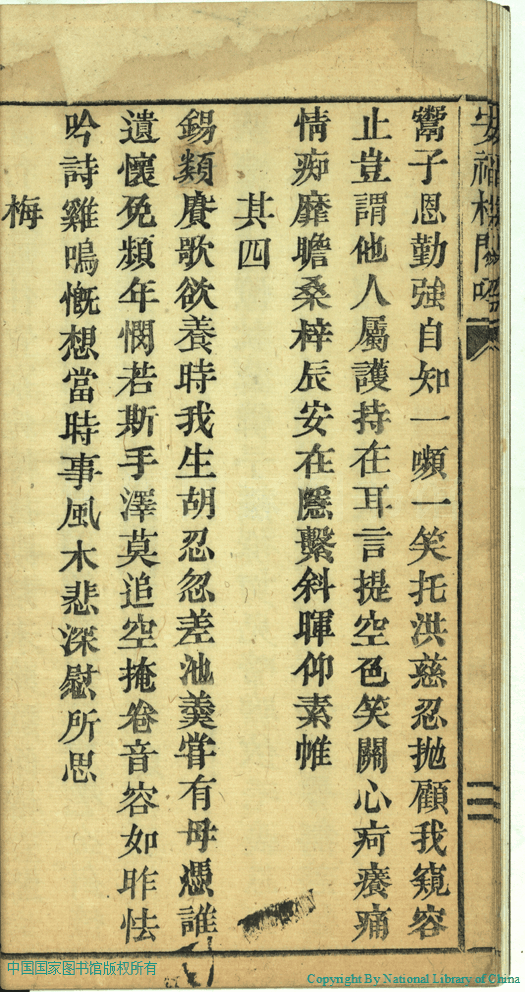 安福樓閒吟
鬻子恩勤強自知一嚬一笑托洪慈忍抛顧我窺容
止豈謂他人屬護持在耳言提空色笑關心疴癢痛
情痴靡瞻桑梓辰安在隱繫斜暉仰素帷
其四
錫類賡歌欲養時我生胡忍忽差池羹嘗有母慿誰
遺懷免頻年憫若斯手澤莫追空掩卷音容如昨怯
吟詩雞鳴慨想當時事風木悲深慰所思
梅
三
中国国家图书馆版权所有
Copyright By National Library of China